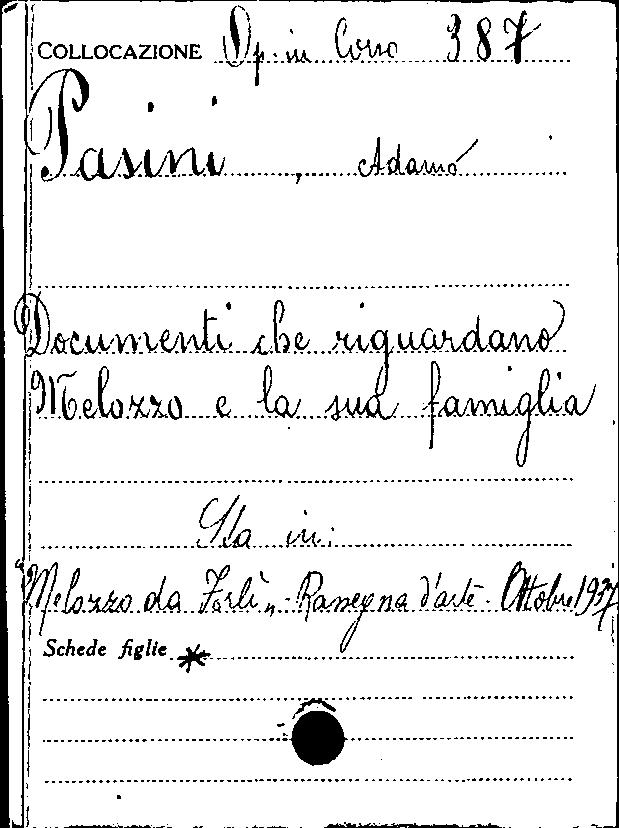 COLLOCAZIONE Op. in Corso 387
Pasini, Adamo
Documenti che riguardano
Melozzo e la sua famiglia
Sta in:
"Melozzo da Forlì" - Rassegna d'arte - Ottobre 1937
Schede figlie *